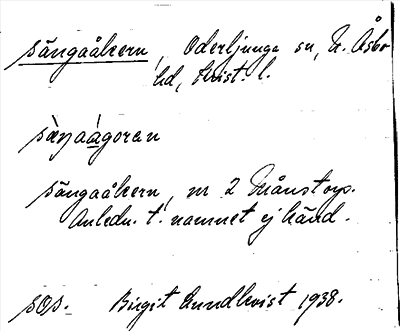 Sängaåkern, Oderljunga sn, N. Åsbo
hd, Krist. l.
sàŋaágoran
Sängaåkern, nr 2 Månstorp.
Anledn. t. namnet ej känd.
sos. Birgit Lundkvist 1938.